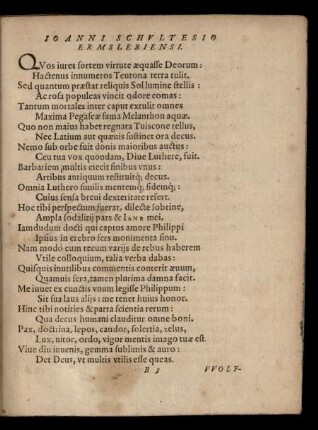 IOANNI SCHVLTESIO
ERMSLEBIENSI.
QVos iures sortem virtute æquasse Deorum:
Hactenus innumeros Teutona terra tulit.
Sed quantum præstat reliquis Sol lumine stellis:
Ac rosa populeas vincit odore comas:
Tantum mortales inter caput extulit omnes
Maxima Pegaseæ fama Melanthon aquæ.
Quo non maius habet regnata Tuiscone tellus,
Nec Latium aut quæuis sustinet ora decus.
Nemo sub orbe fuit donis maioribus auctus:
Ceu tua vox quondam, Diue Luthere, fuit.
Barbariem multis eiecit finibus vnus:
Artibus antiquum restituitq; decus.
Omnia Luthero similis mentemq; fidemq;:
Cuius sensa breui dexteritate refert.
Hoc tibi perspectum fuerat, dilecte sobrine,
Ampla sodalitij pars & IANE mei.
Iamdudum docti qui captus amore Philippi
Ipsius in crebro fers monimenta sinu.
Nam modò cum tecum varijs de rebus haberem
Vtile colloquium, talia verba dabas:
Quisquis inutilibus commentis conterit æuum,
Quamuis sera, tamen plurima damna facit.
Me iuuet ex cunctis vnum legisse Philippum:
Sit sua laus alijs: me tenet huius honor.
Hinc tibi notities & parta scientia rerum:
Qua decus humani clauditur omne boni.
Pax, doctrina, lepos, candor, solertia, zelus,
Lux, nitor, ordo, vigor mentis imago tuæ est.
Viue diu iuuenis, gemma sublimis & auro:
Det Deus, vt multis vtilis esse queas.
B 3 VVOLF-